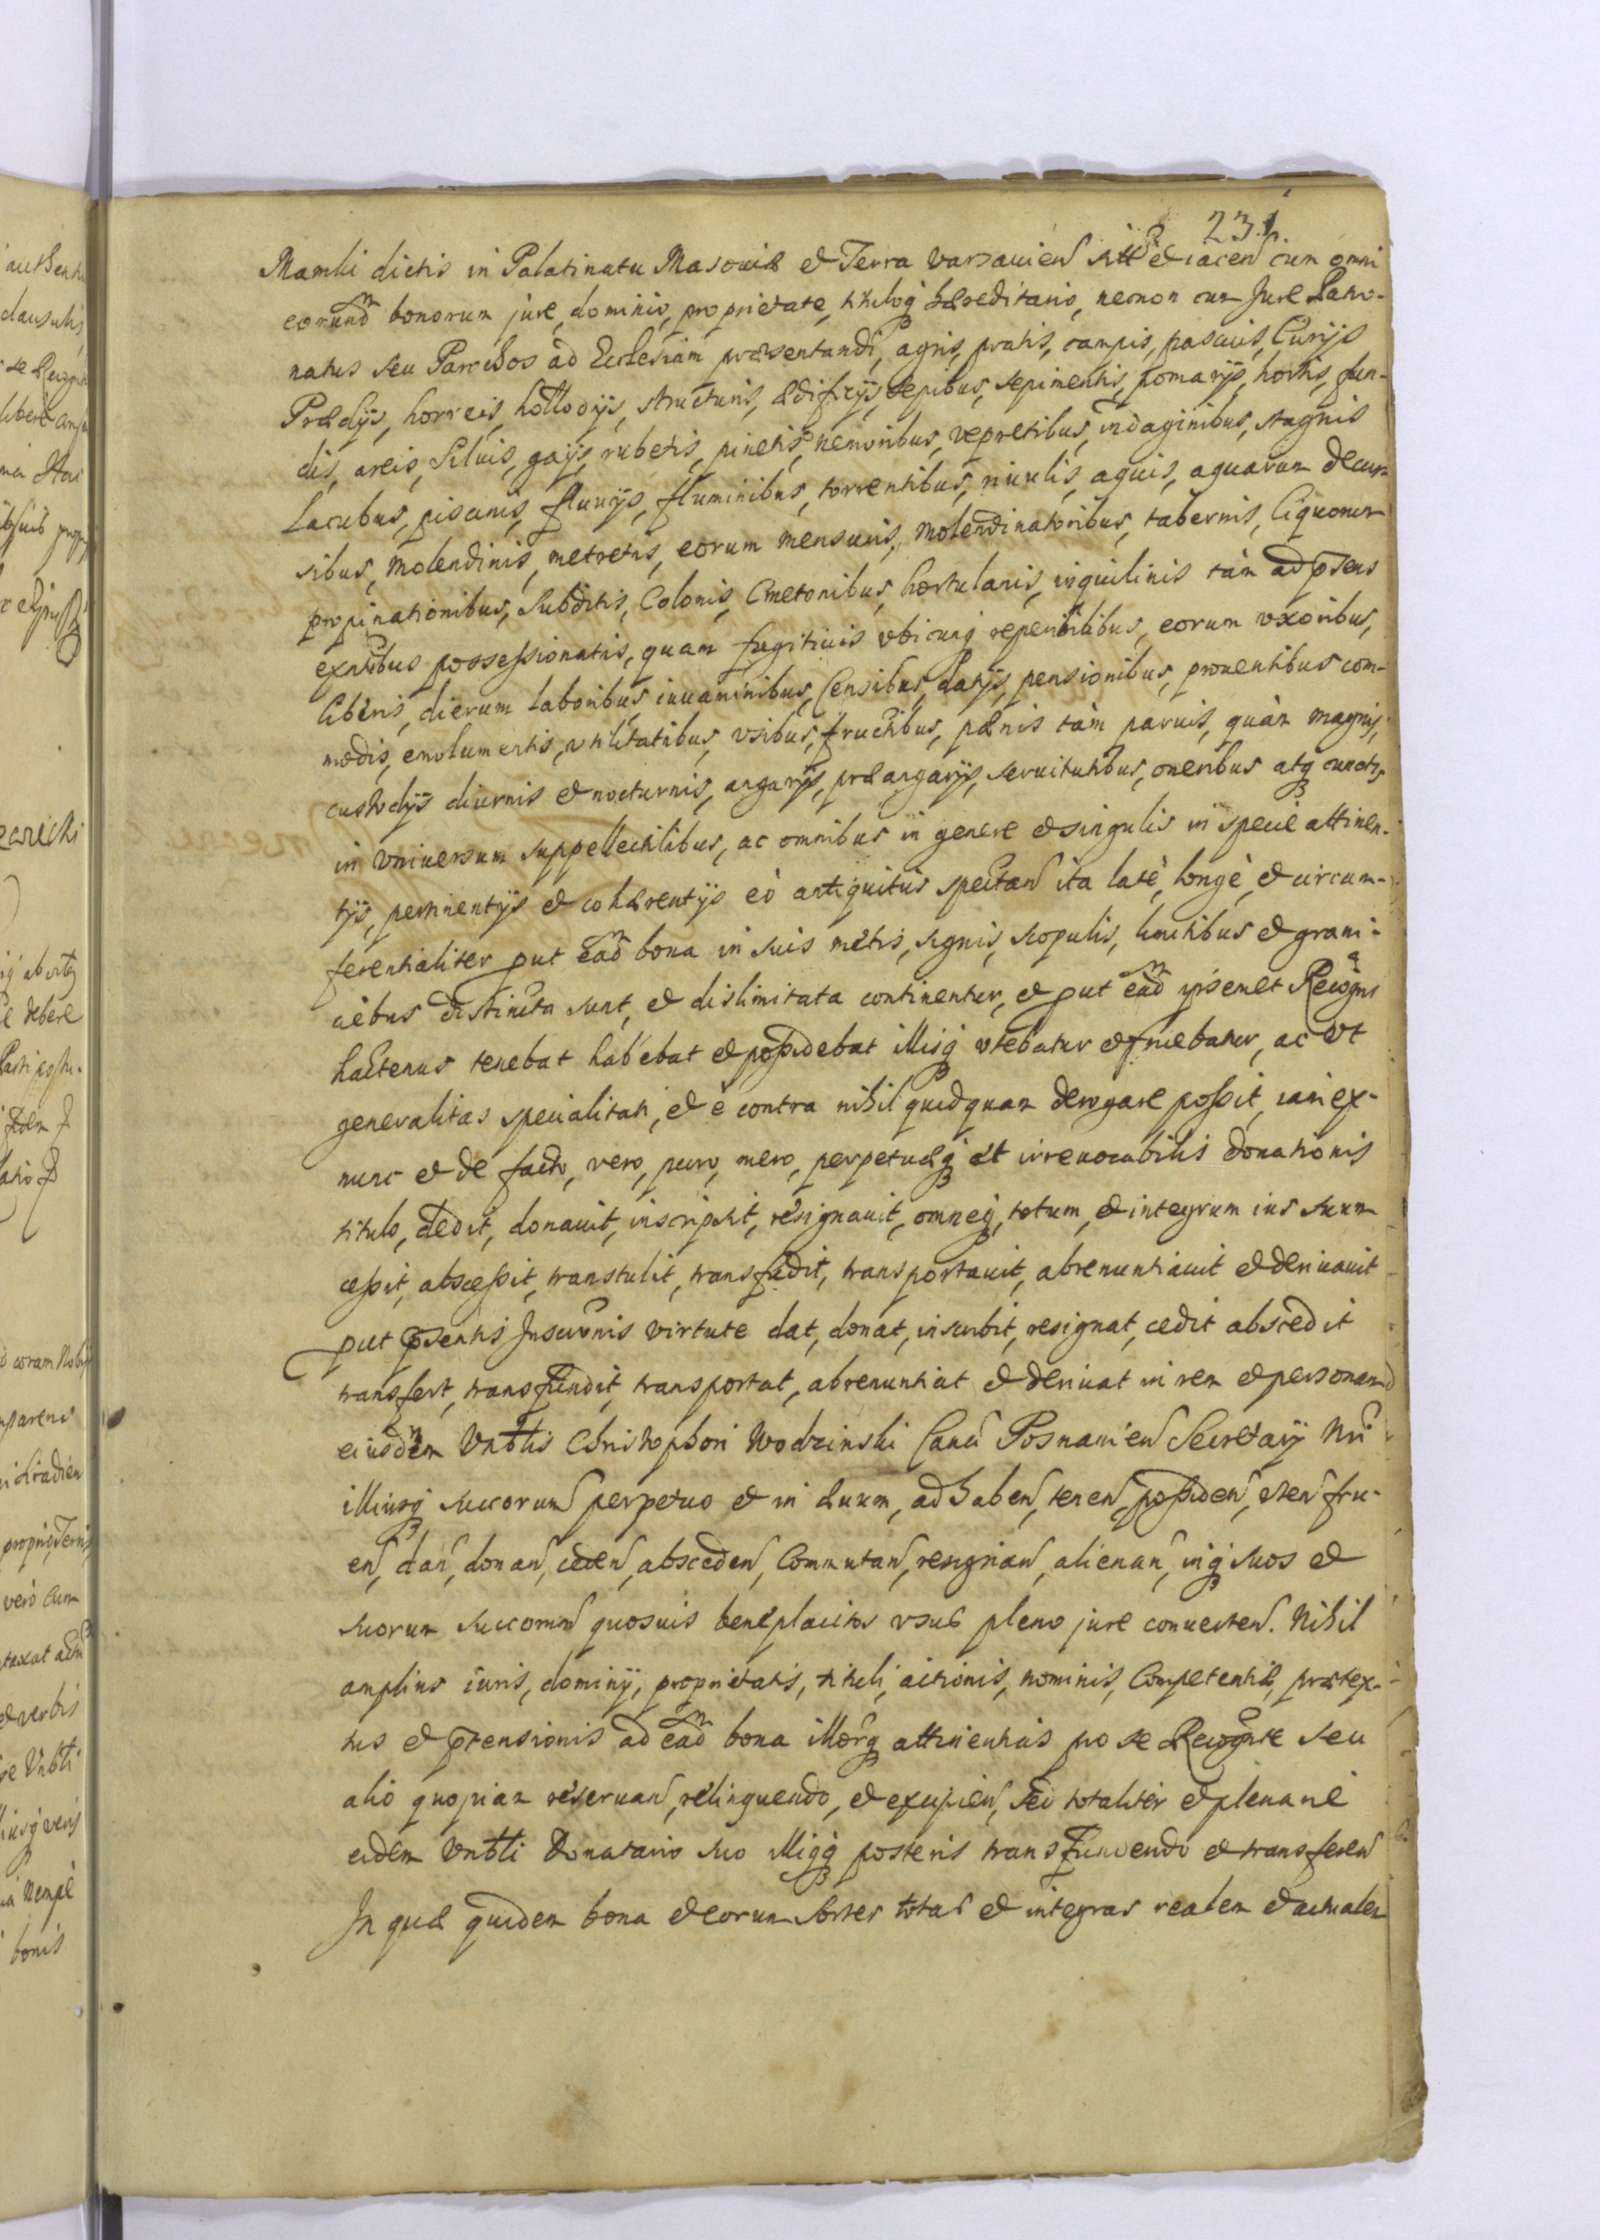 231.
Mamki dictis in Palatinatu Masouiæ et Terra Varsauien sitt et iacen cum omni
eorund bonorum jure, dominio, proprietate, tituloq hæreditario, necnon cum Jure Patro-
natus seu Parochos ad Ecclesiam præsentandi, agris, pratis, campis, pascuis, Curijs
Prædijs, horreis, structuris, ædificijs, sepibus, sepimentis, pomarijs, hortis, fun-
dis, areis, Siluis, gajs, rubetis, pinetis, nemoribus, vepretibus, indaginibus, stagnis
Lacubus, piscinis, fluuijs, fluminibus, torrentibus, riuulis, aquis, aquarum decur-
sibus, Molendinis, metretis, eorum mensuris, Molendinatoribus, tabernis, liquorum
propinationibus, Subditis, Colonis, Cmetonibus, hortulanis, inquilinis tàm ad pñens
exñtibus possessionatis, quam fugitiuis vbicunq reperibilibus, eorum vxoribus,
liberis, dierum laboribus iuuaminibus, Censibus, datijs, pensionibus, prouentibus com-
modis, emolumentis, vtilitatibus, vsibus, fructibus, pænis tàm paruis, quàm magnis,
custodijs diurnis et nocturnis, angarijs, præangarijs, seruitutibus, oneribus atq cunctis
in vniuersum suppellectilibus, ac omnibus in genere et singulis in specie attinen-
tijs, pertinentijs et cohærentijs eò antiquitùs spectan ita latè, longè, et circum-
ferentialiter put ead bona in suis metis, signis, scopulis, limitibus et grani-
ciebus distincta sunt, et dislimitata continentur, et put ead ipsemet Recogns
hactenus tenebat habebat et possidebat illisq vtebatur et fruebatur, ac vt
generalitas specialitati, et è contra nihil quidquam derogare possit, iam ex-
nunc et de facto, vero, puro, mero, perpetuæq et irreuocabilis donationis
titulo, dedit, donauit, inscripsit, resignauit, omneq, totum, et integrum ius suum
cessit, abscessit, transtulit, transfudit, transportauit, abrenuntiauit et deriuauit
put pñentis Inscriõnis virtute dat, donat, inscribit, resignat, cedit abscedit
transfert, transfundit, transportat, abrenuntiat et deriuat in rem et personam
eiusdem Vnblis Christophori Wodzinski Canci Posnanien Secretarij Nri
illiusq succorum perpetuo et in æuum, ad haben, tenen, possiden, vten fru-
en, dan, donan, ceden, absceden, Commutan, resignan, alienan, inq suos et
suorum succorum quosuis beneplacitos vsus pleno jure conuerten. Nihil
amplius iuris, dominij, proprietatis, tituli, actionis, nominis, Competentiæ, prætex-
tus et ptensionis ad ead bona illorq attinentias pro se Recognte seu
alio quopiam reseruan, relinquendo, et excipien, sed totaliter et plenariè
eidem Vnbli Donatario suo illiqq posteris transfundendo et transferen
In quæ quidem bona et eorum sortes totas et integras realem et actualem